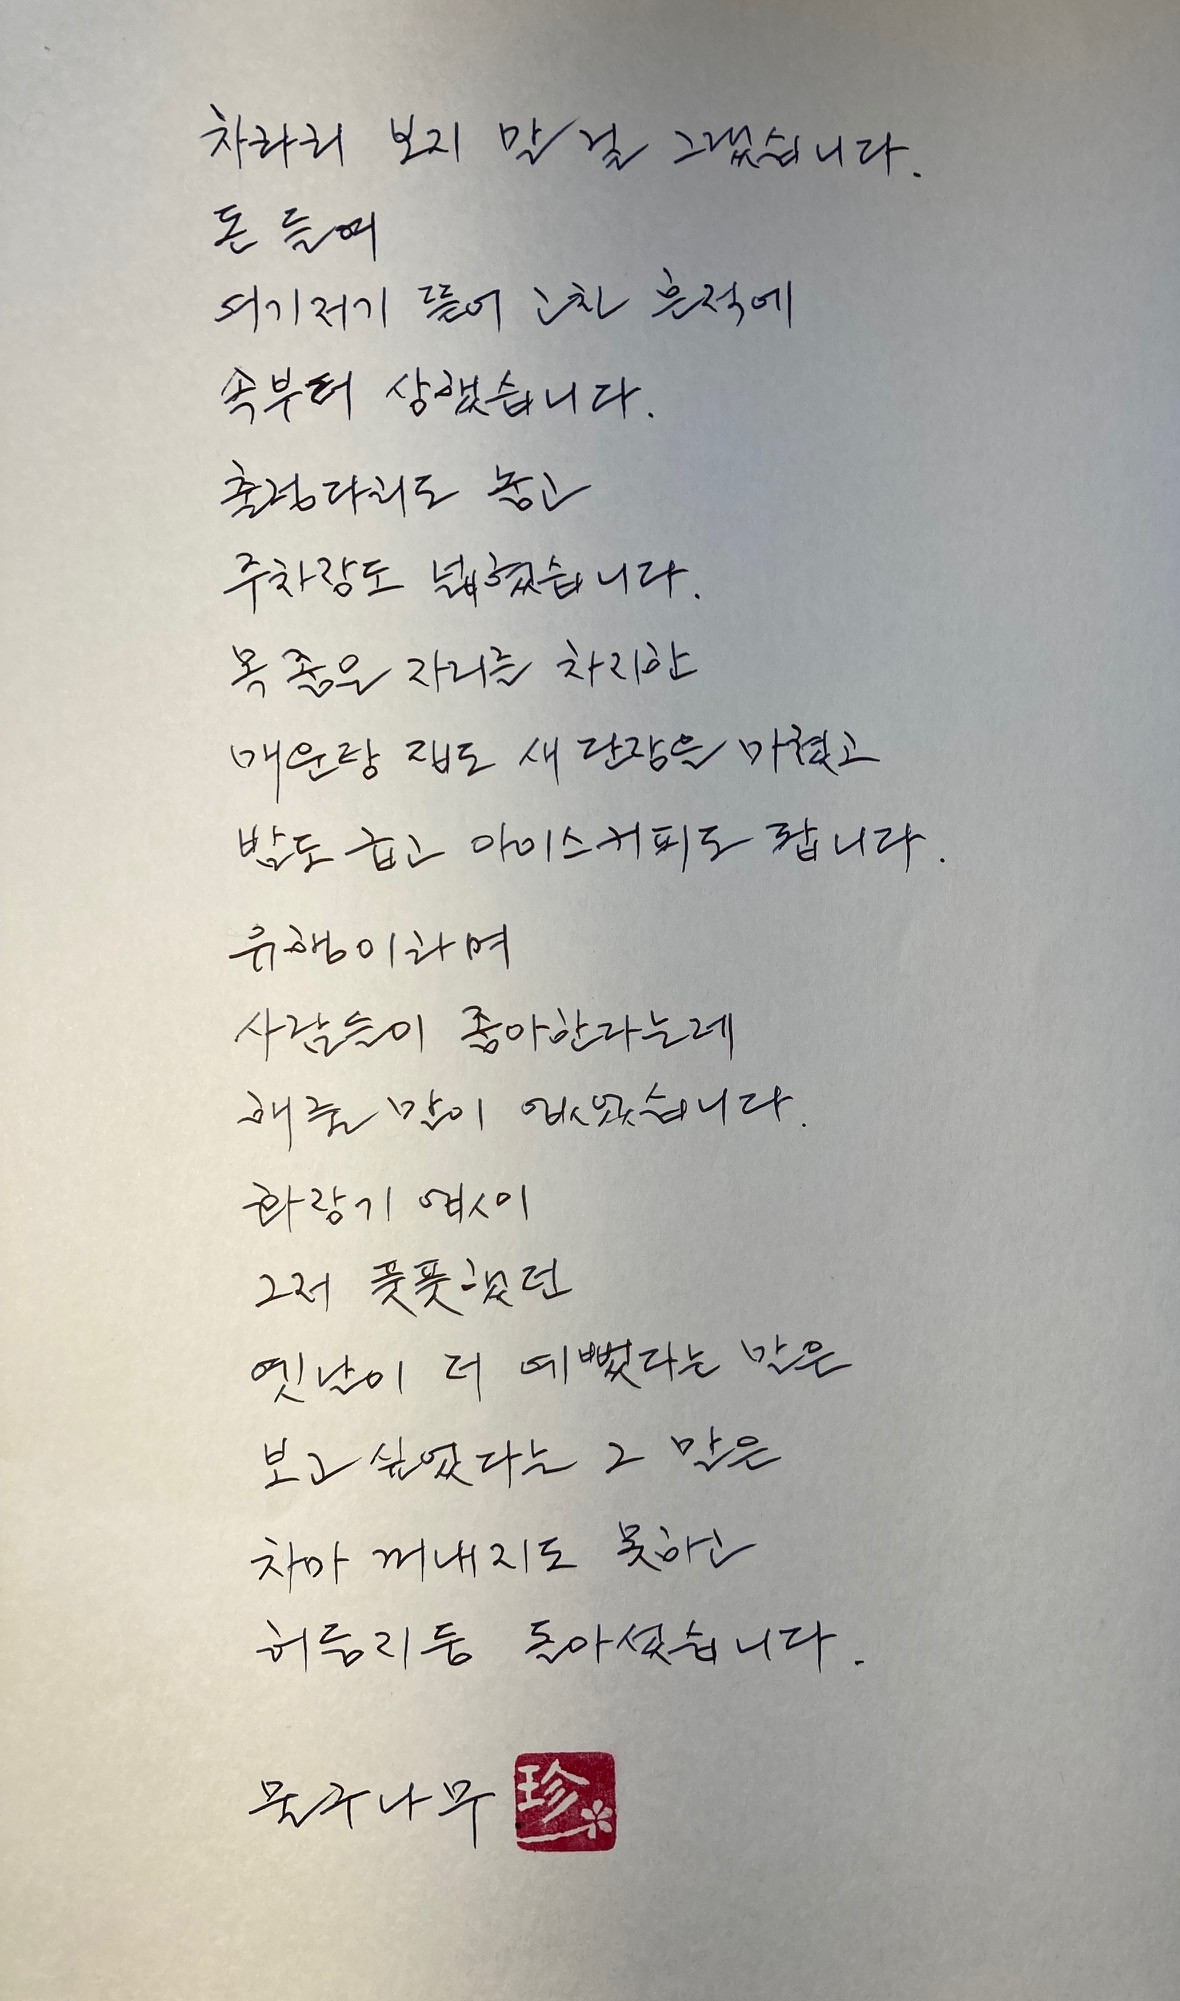 차라리 보지 말 걸 그랬습니다.
돈 들여
여기저기 뜯어 고친 흔적에
속부터 상했습니다.
출렁다리도 놓고
주차장도 넓혔습니다.
목 좋은 자리를 차지한
매운탕 집도 새 단장을 마쳤고
밥도 굽고 아이스커피도 팝니다.
유행이라며
사람들이 좋아한다는데
해줄 말이 없었습니다.
화장기 없이
그저 풋풋했던
옛날이 더 예뻤다는 말은
보고 싶었다는 그 말은
차마 꺼내지도 못하고
허둥지둥 돌아섰습니다.
물구나무
珍